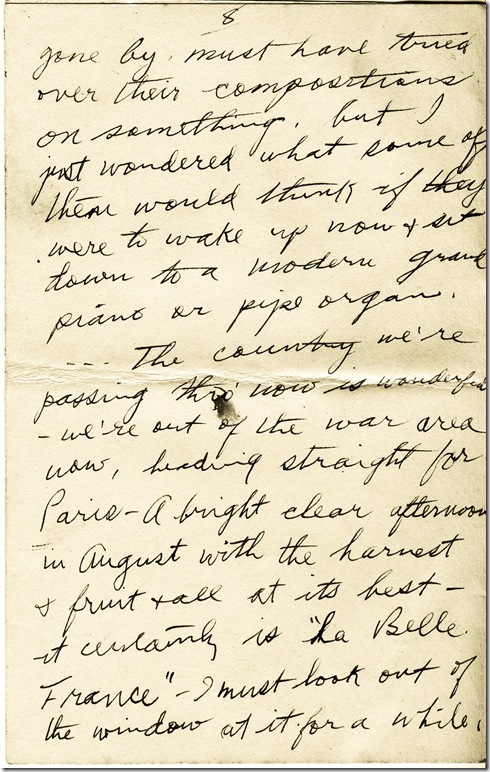 8
gone by, must have tried
over their compositions
on something, but I
just wondered what some of
them would think if they
were to wake up now & sit
down to a modern grand
piano or pipe organ.
--- The country we're
passing thro' now is wonderful
- we're out of the war area
now, heading straight for
Paris - A bright clear afternoon
in August with the harvest
& fruit & all at its best -
it certainly is "La Belle
France" - I must look out of
the window at it for a while.